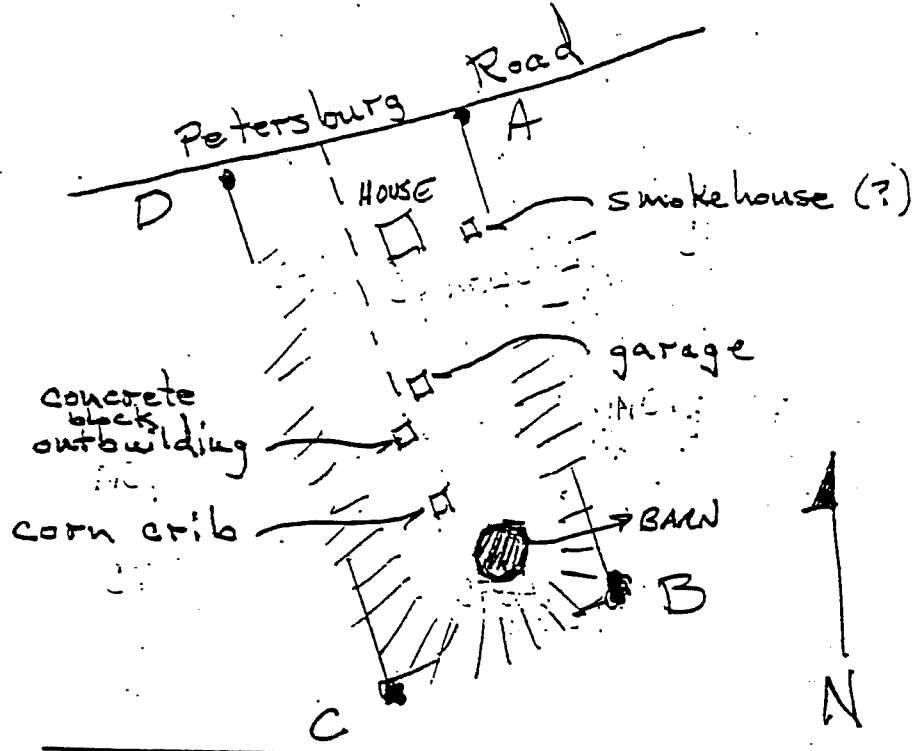 Petersburg Road
A
D
HOUSE
smokehouse (?)
garage
concrete
block
outbuilding
corn crib
BARN
B
C
N